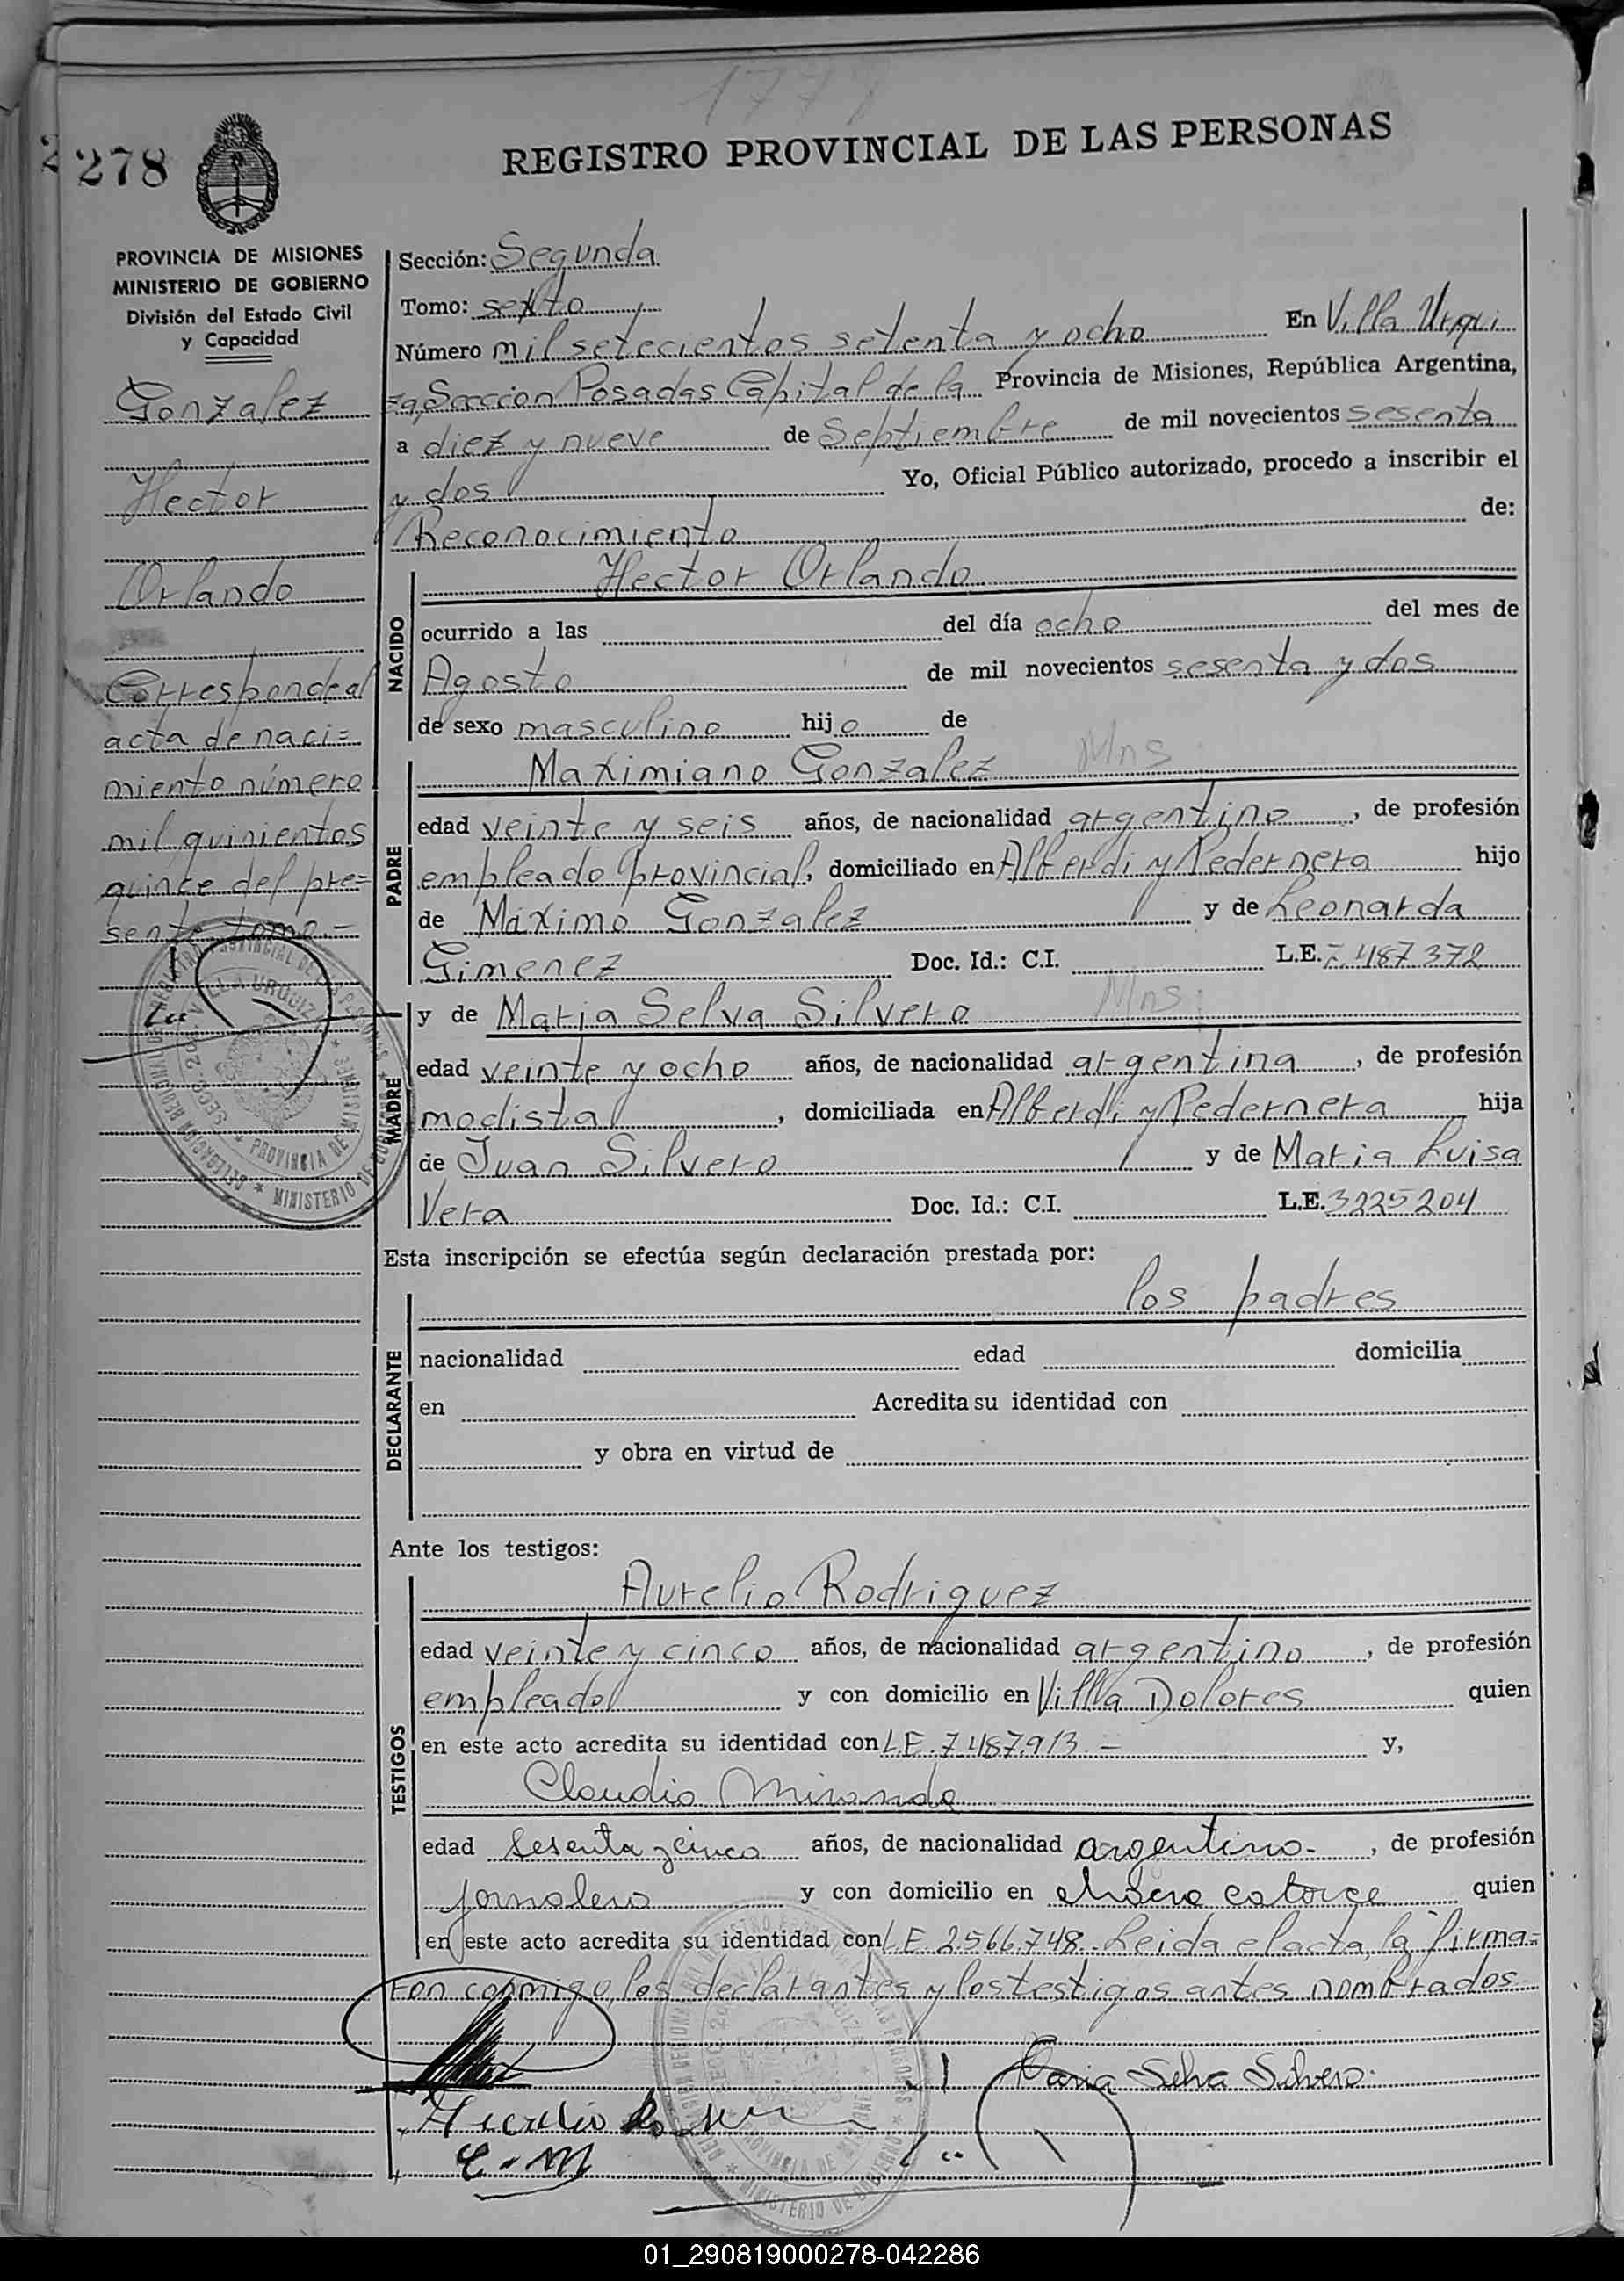 1778
278
REGISTRO PROVINCIAL DE LAS PERSONAS
PROVINCIA DE MISIONES
MINISTERIO DE GOBIERNO
División del Estado Civil
y Capacidad
Gonzalez
Hector
Orlando
Corresponde al
acta de naci=
miento número
mil quinientos
quince del pre=
sente tomo.-
Sección: Segunda
Tomo: sexto
Número mil setecientos setenta y ocho En Villa Urqui
za, Seccion Posadas Capital de la Provincia de Misiones, República Argentina,
a diez y nueve de Septiembre de mil novecientos sesenta
y dos Yo, Oficial Público autorizado, procedo a inscribir el
Reconocimiento de:
NACIDO
Hector Orlando
ocurrido a las del día ocho del mes de
Agosto de mil novecientos sesenta y dos
de sexo masculino hijo de
PADRE
Maximiano Gonzalez Mns
edad veinte y seis años, de nacionalidad argentino, de profesión
empleado provincial, domiciliado en Alberdi y Pedernera hijo
de Máximo Gonzalez y de Leonarda
Gimenez Doc. Id.: C.I. L.E. 7.487.372
MADRE
y de Maria Selva Silvero Mns
edad veinte y ocho años, de nacionalidad argentina, de profesión
modista, domiciliada en Alberdi y Pedernera hija
de Juan Silvero y de Maria Luisa
Vera Doc. Id.: C.I. L.E. 3225204
Esta inscripción se efectúa según declaración prestada por:
DECLARANTE
los padres
nacionalidad edad domicilia
en Acredita su identidad con
y obra en virtud de
Ante los testigos:
TESTIGOS
Aurelio Rodriguez
edad veinte y cinco años, de nacionalidad argentino, de profesión
empleado y con domicilio en Villa Dolores quien
en este acto acredita su identidad con L.E. 7.487.913.- y,
Claudio Miranda
edad sesenta y cinco años, de nacionalidad argentino-, de profesión
jornalero y con domicilio en chacra catorce quien
en este acto acredita su identidad con L.E. 2.566.748. Leida el acta, la firma=
ron conmigo, los declarantes y los testigos antes nombrados
Maria Selva Silvero.
C.M
01_290819000278-042286